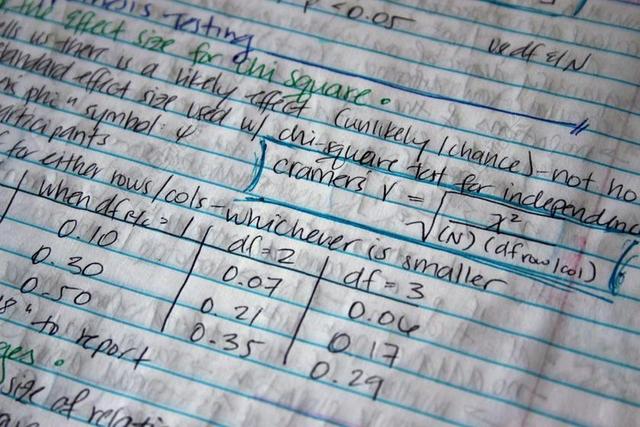 p < 0.05
hesis Testing
use df & N
effect size for chi square.
ells us there is a likely effect (unlikely / chance) - not ho
standard effect size used w/ chi-square test for independenc
phi" symbol: φ
cramer's V = √ x² / (N)(df row/col)
articipants
for either rows/cols - whichever is smaller
when df r/c = 1 | df = 2 | df = 3
0.10 | 0.07 | 0.06
0.30 | 0.21 | 0.17
0.50 | 0.35 | 0.29
" to report
ges.
size of relati